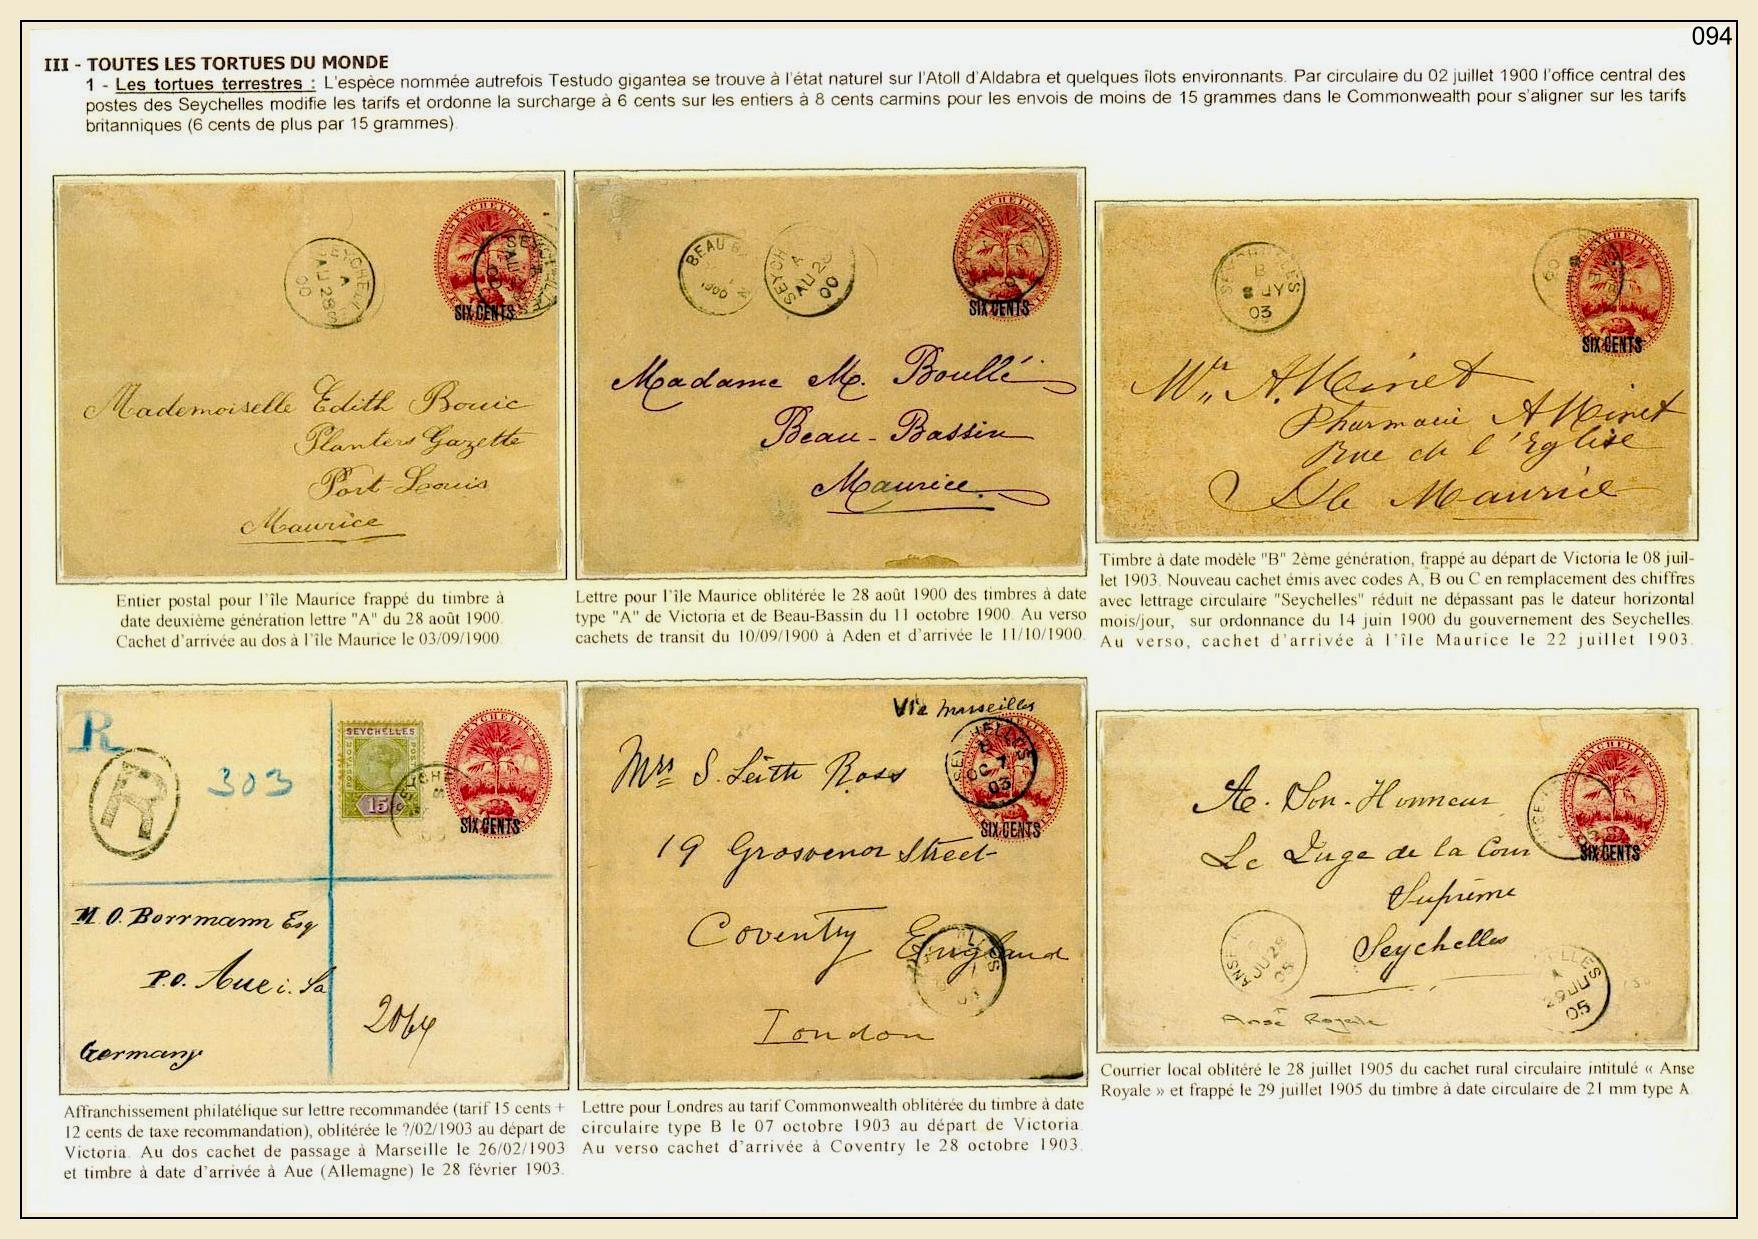 094
III - TOUTES LES TORTUES DU MONDE
1 - Les tortues terrestres : L'espèce nommée autrefois Testudo gigantea se trouve à l'état naturel sur l'Atoll d'Aldabra et quelques îlots environnants. Par circulaire du 02 juillet 1900 l'office central des
postes des Seychelles modifie les tarifs et ordonne la surcharge à 6 cents sur les entiers à 8 cents carmins pour les envois de moins de 15 grammes dans le Commonwealth pour s'aligner sur les tarifs
britanniques (6 cents de plus par 15 grammes).
SEYCHELLES
A
AU 28
00
SIX CENTS
Mademoiselle Edith Bouic
Planters Gazette
Port-Louis
Maurice
Entier postal pour l'île Maurice frappé du timbre à
date deuxième génération lettre "A" du 28 août 1900.
Cachet d'arrivée au dos à l'île Maurice le 03/09/1900.
SEYCHELLES
BEAU
1900
SEYCH
A
AU 28
00
SIX CENTS
Madame M. Boullé
Beau-Bassin
Maurice.
Lettre pour l'île Maurice oblitérée le 28 août 1900 des timbres à date
type "A" de Victoria et de Beau-Bassin du 11 octobre 1900. Au verso
cachets de transit du 10/09/1900 à Aden et d'arrivée le 11/10/1900.
SEYCHELLES
B
8 JY
03
SIX CENTS
A. Minet
Pharmacie A Minet
Rue de l'Eglise
Ile Maurice
Timbre à date modèle "B" 2ème génération, frappé au départ de Victoria le 08 juil-
let 1903. Nouveau cachet émis avec codes A, B ou C en remplacement des chiffres
avec lettrage circulaire "Seychelles" réduit ne dépassant pas le dateur horizontal
mois/jour, sur ordonnance du 14 juin 1900 du gouvernement des Seychelles.
Au verso, cachet d'arrivée à l'île Maurice le 22 juillet 1903.
R
R
303
SEYCHELLES
POSTAGE
15c
SEYCHELLES
SIX CENTS
M. O. Borrmann Esq
P.O. Aue i. Sa
Germany
Affranchissement philatélique sur lettre recommandée (tarif 15 cents +
12 cents de taxe recommandation), oblitérée le ?/02/1903 au départ de
Victoria. Au dos cachet de passage à Marseille le 26/02/1903
et timbre à date d'arrivée à Aue (Allemagne) le 28 février 1903.
Via Marseilles
SEYCHELLES
B
OC 7
03
SIX CENTS
Mrs S. Leith Ross
19 Grosvenor Street
Coventry England
London
Lettre pour Londres au tarif Commonwealth oblitérée du timbre à date
circulaire type B le 07 octobre 1903 au départ de Victoria.
Au verso cachet d'arrivée à Coventry le 28 octobre 1903.
SEYCHELLES
SIX CENTS
A. Son-Honneur
Le Juge de la Cour
Suprême
Seychelles
JU 28
05
Anse Royale
A
29 JU
05
Courrier local oblitéré le 28 juillet 1905 du cachet rural circulaire intitulé « Anse
Royale » et frappé le 29 juillet 1905 du timbre à date circulaire de 21 mm type A.